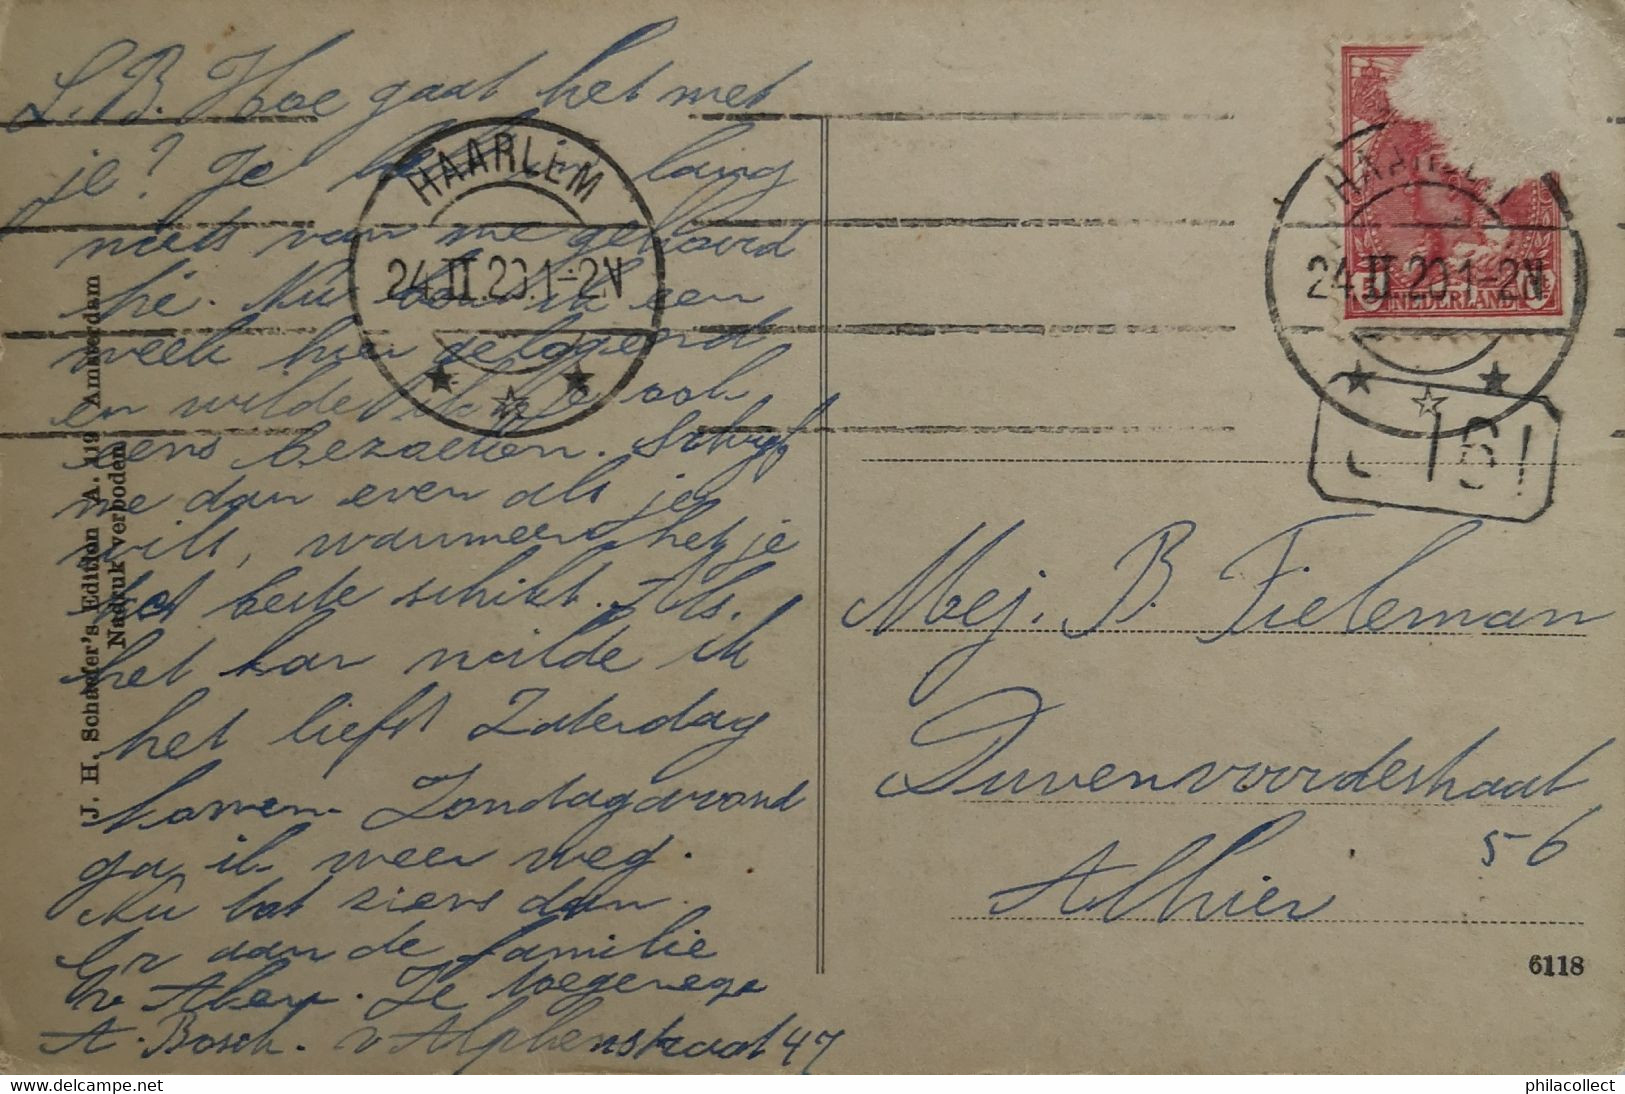 L.B. Hoe gaat het met
je? Je hebt in lang
niets van me gehoord
hè. Nu ben ik een
week hier gelogeerd
en wilde ik je ook
eens bezoeken. Schrijf
me dan even als je
wilt, wanneer het je
het beste schikt. Als
het kan wilde ik
het liefst Zaterdag
komen. Zondagavond
ga ik weer weg.
Nu tot ziens dan.
Gr aan de familie
v Allen. Je toegenegen
A. Bosch. v Alphenstraat 47
HAARLEM
24.II.20.1-2N
J. H. Schaefer's Edition A. 119 Amsterdam
Nadruk verboden
HAARLEM
24.II.20.1-2N
NEDERLAND
Mej. B. Tieleman
Duvenvoordestraat
56
Alhier
6118
philacollect